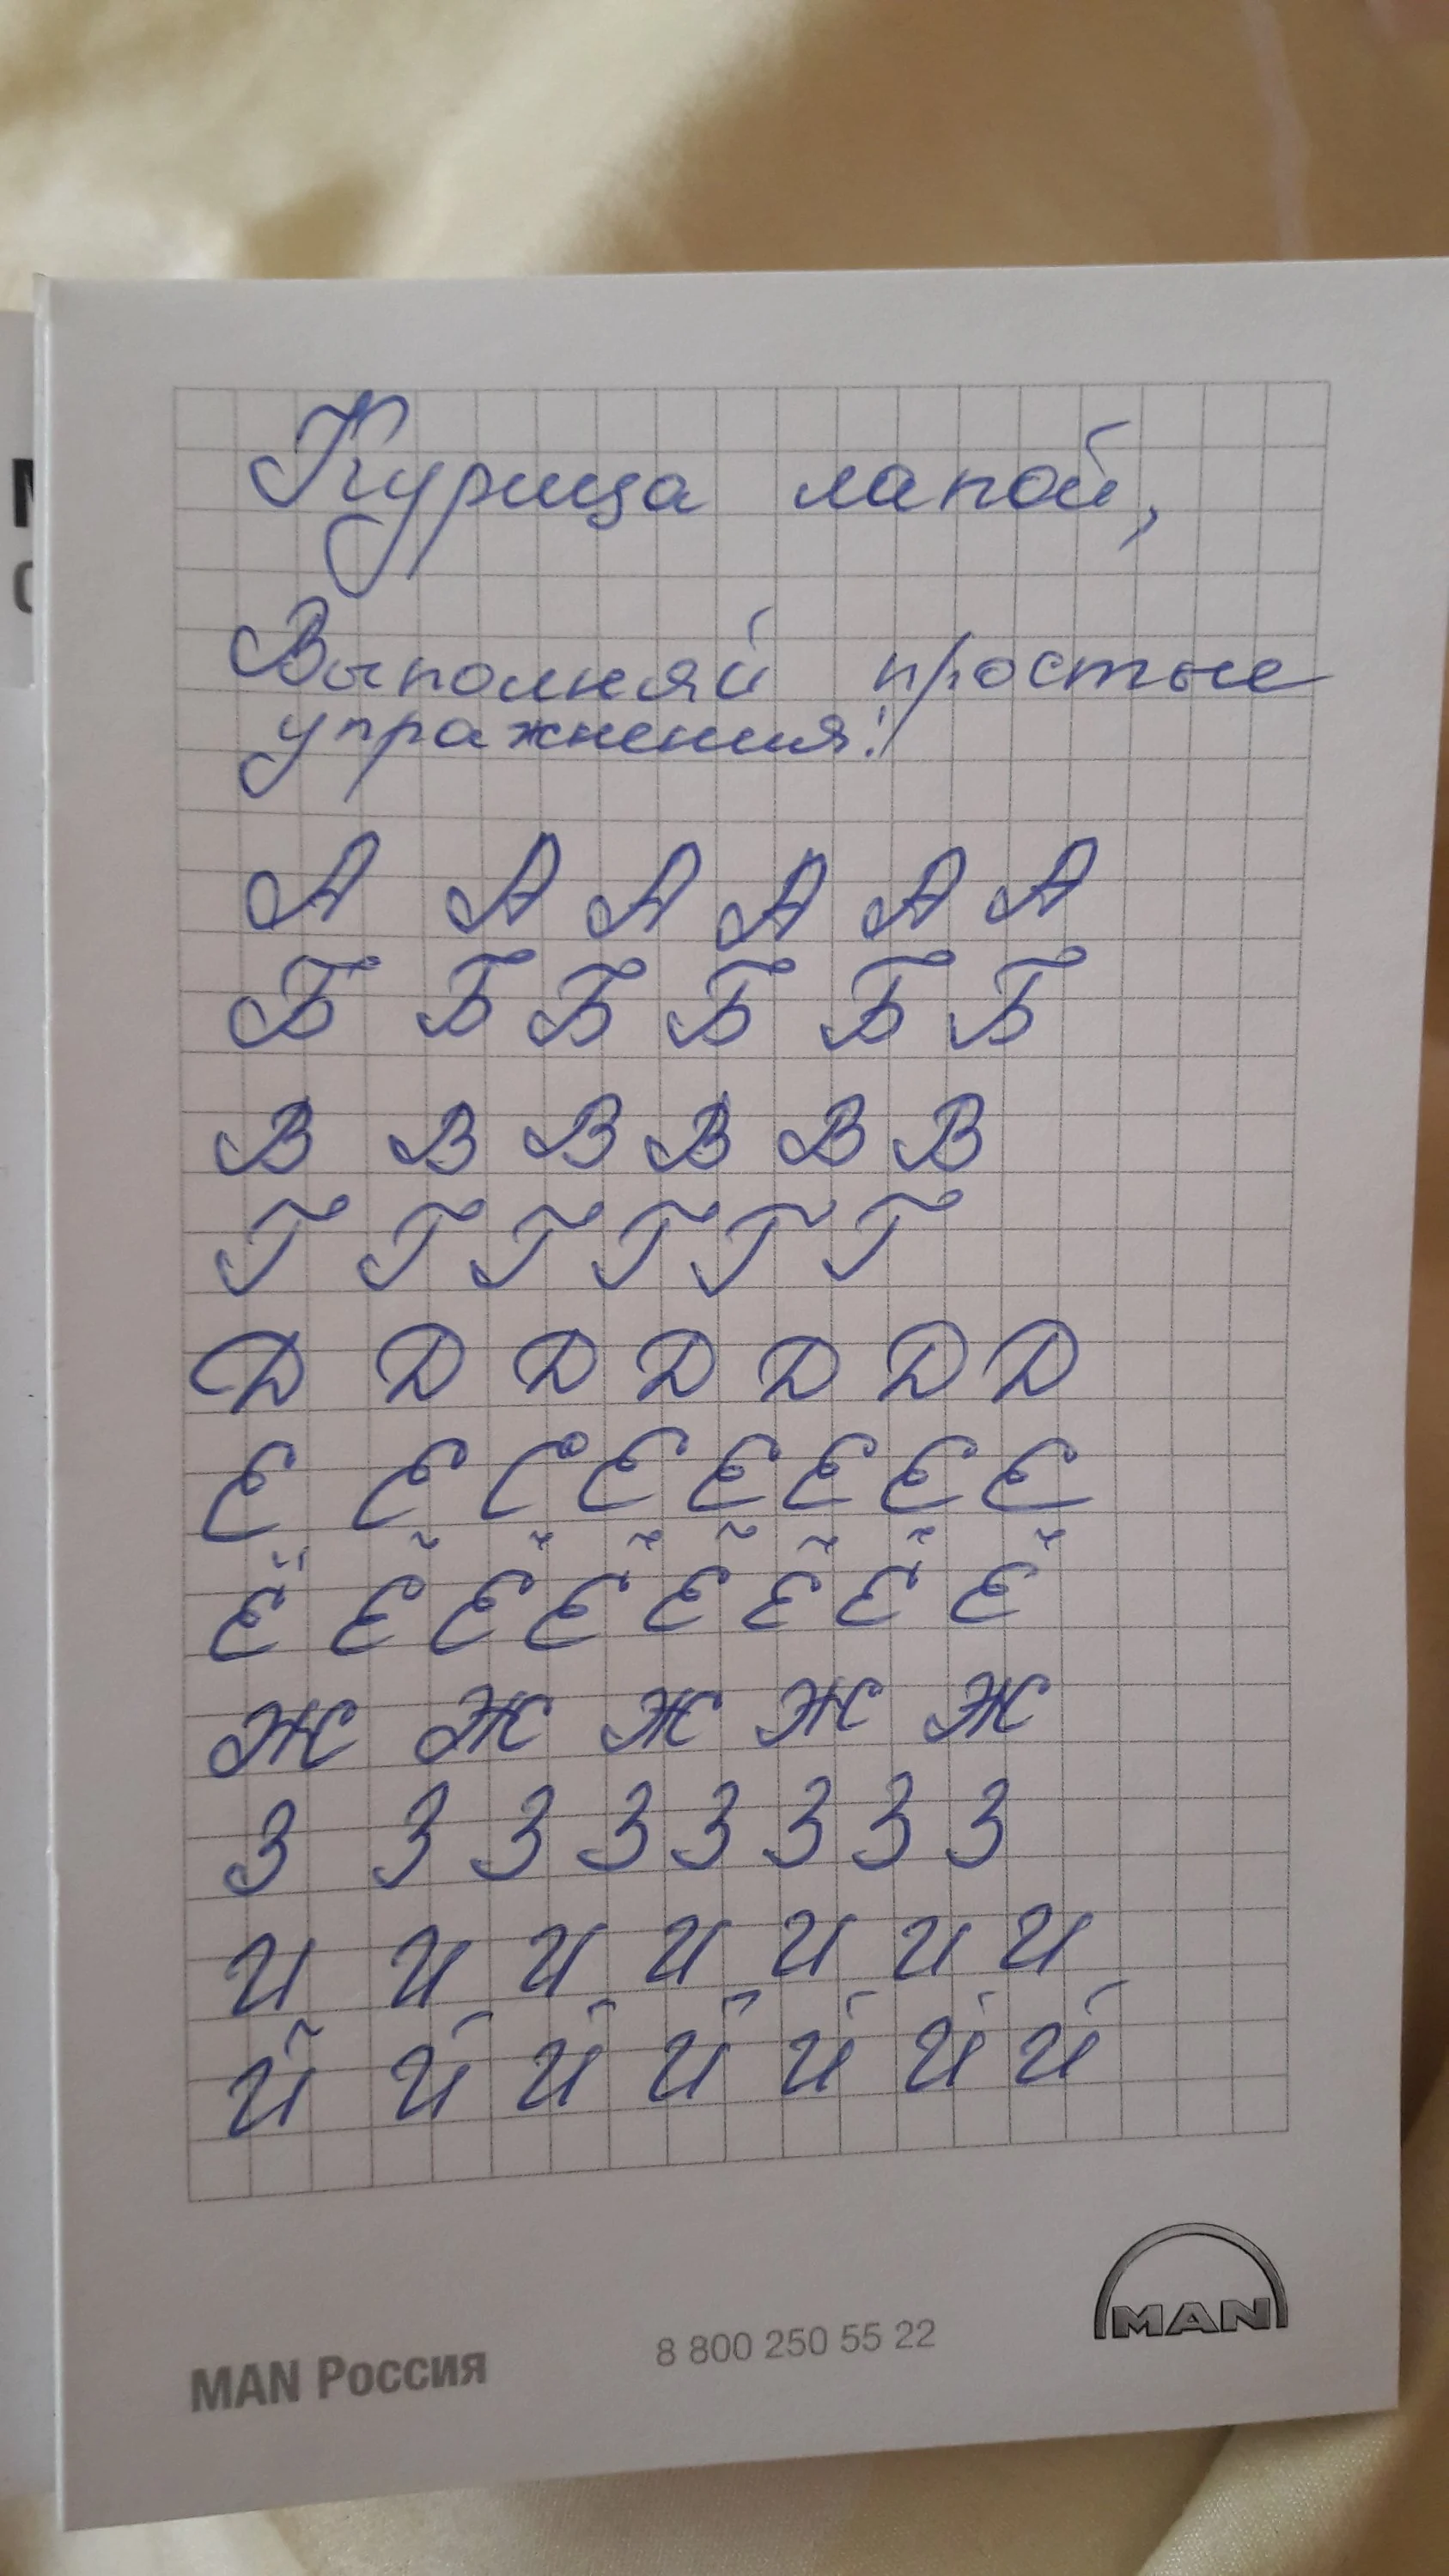 Курица лапой,
Выполняй простые
упражнения!
А А А А А А
Б Б Б Б Б Б
В В В В В В
Г Г Г Г Г Г
Д Д Д Д Д Д Д
Е Е Е Е Е Е Е Е
Ё Ё Ё Ё Ё Ё Ё Ё
Ж Ж Ж Ж Ж
З З З З З З З З
И И И И И И И
Й Й Й Й Й Й Й
MAN Россия 8 800 250 55 22 MAN